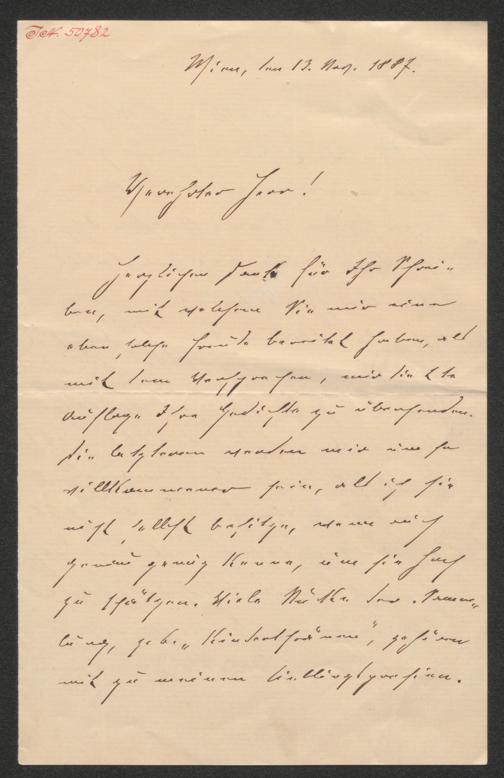 I.N. 50782
Wien, den 13. Nov. 1887.
Verehrter Herr!
Herzlichen Dank für Ihr Schrei-
ben, mit welchem Sie mir eine
eben solche Freude bereitet haben, als
mit dem Versprechen, mir die
Auflage Ihrer Gedichte zu übersenden.
Die letzteren werden mir um so
willkommener sein, als ich sie
nicht selbst besitze, wenn auch
genau genug kenne, um sie hoch
zu schätzen. Viele Stücke der „Samm-
lung, „Kinderthränen", gehören
mit zu meinen Lieblingspoesien.